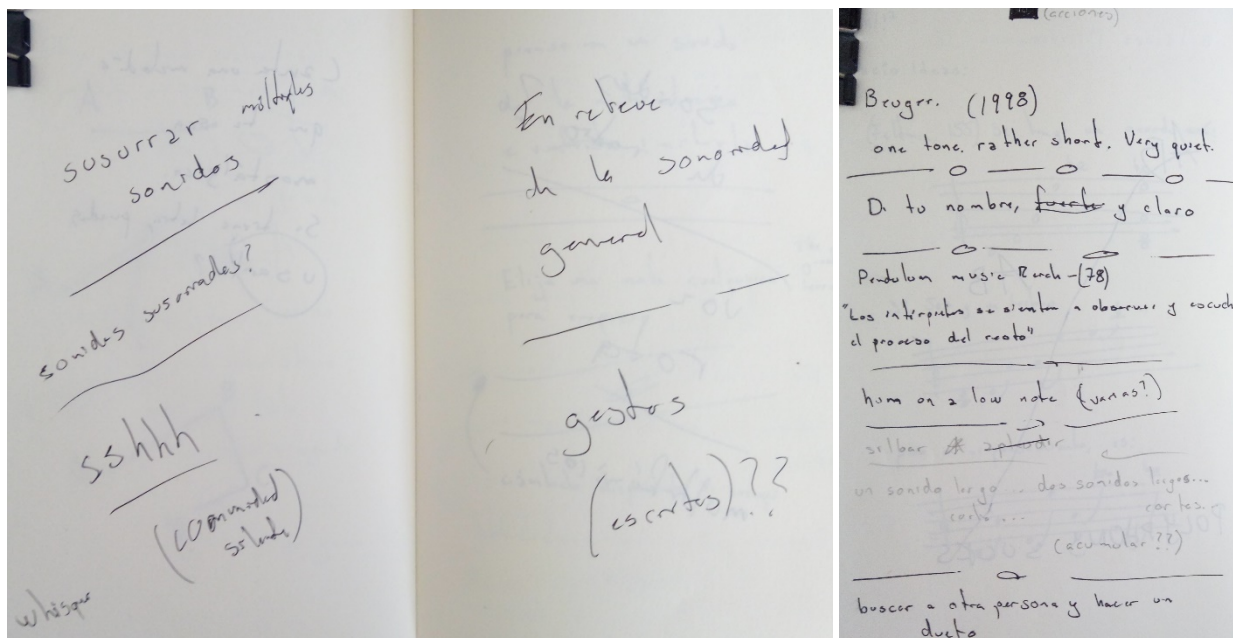 susurrar múltiples
sonidos
sonidos susurrados?
sshhh
(comunidad
En relieve
de la sonoridad
general
gestos
(escritos)??
(acciones)
Beuger. (1998)
one tone, rather short. Very quiet.
Di tu nombre, fuerte y claro
Pendulum music Reich-(78)
"Los intérpretes se sientan a observar y escuch
el proceso del resto"
hum on a low note (varias?)
silbar aplaudir
un sonido largo... dos sonidos largos...
corto... cortos..
(acumular??)
buscar a otra persona y hacer un
dueto